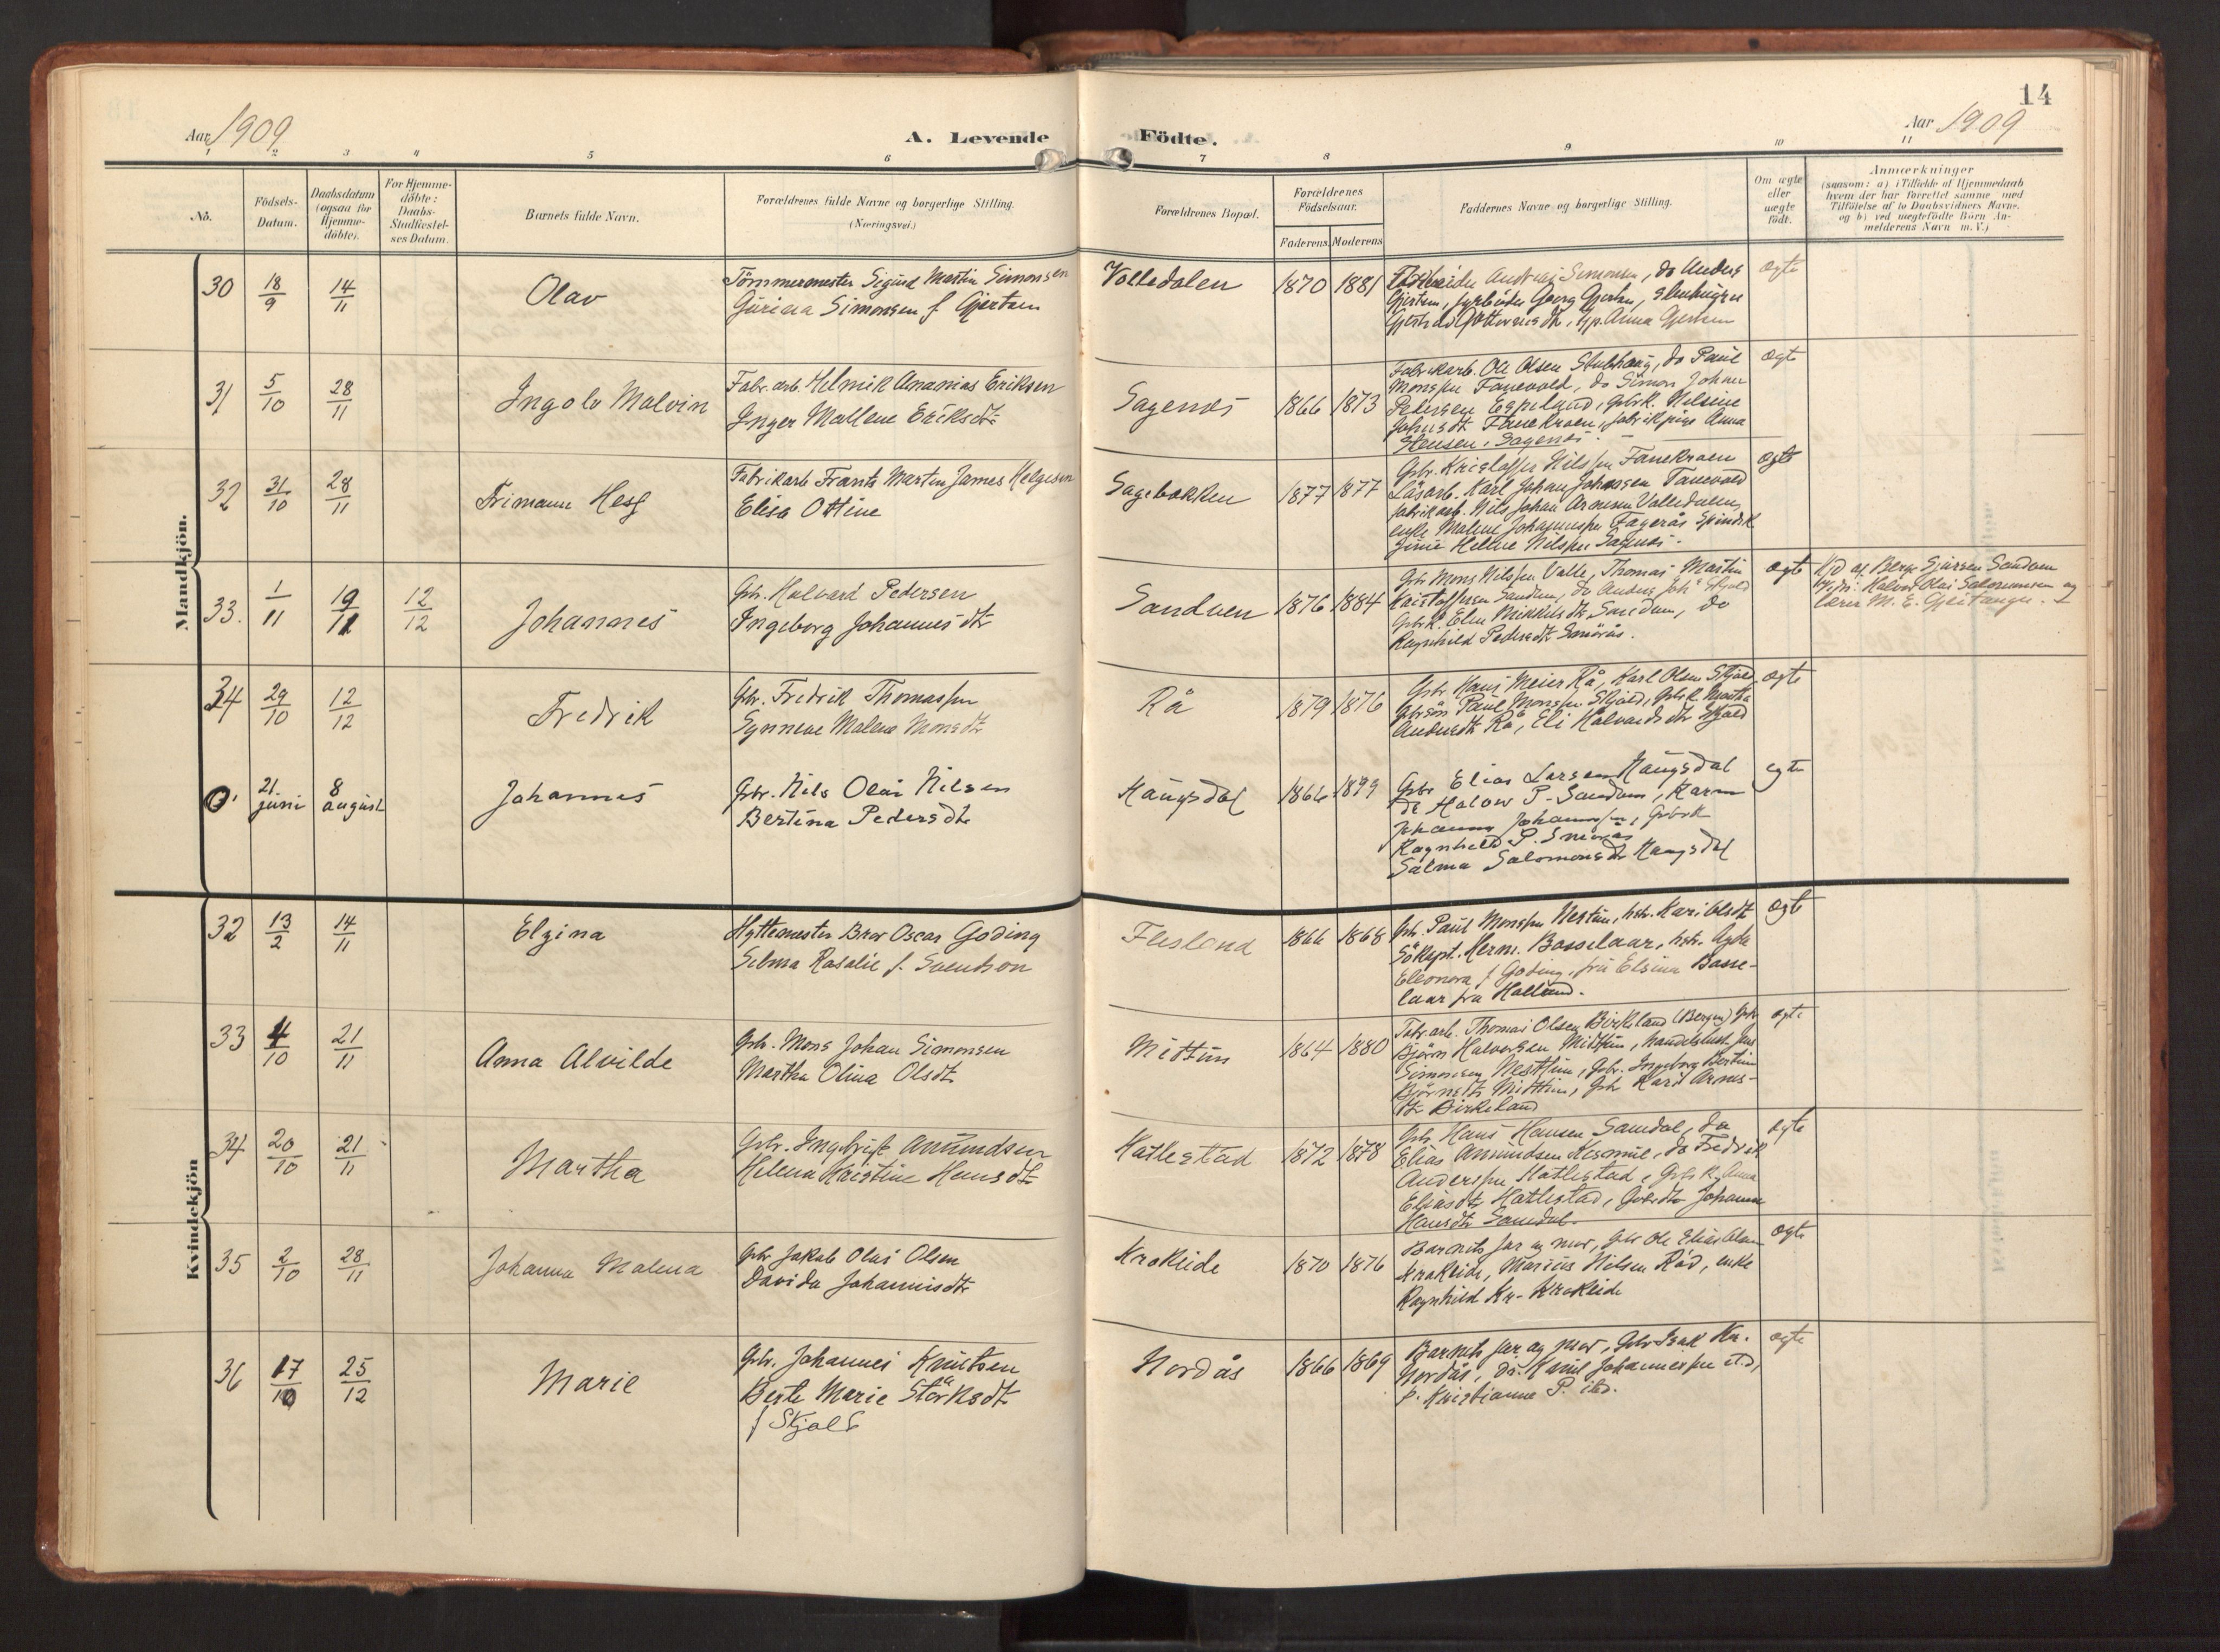 14
Aar 1909
A. Levende Födte.
Aar 1909
1 2 3 4 5 6 7 8 9 10 11
No.
Födsels-
Datum.
Daabsdatum
(ogsaa for
Hjemme-
döbte).
For Hjemme-
döbte:
Daabs-
Stadfæstel-
ses Datum.
Barnets fulde Navn.
Forældrenes fulde Navne og borgerlige Stilling.
(Næringsvei.)
Forældrenes Bopæl.
Forældrenes
Födselsaar.
Faderens Moderens
Faddernes Navne og borgerlige Stilling.
Om ægte
eller
uægte
födt.
Anmærkninger
(saasom: a) i Tilfælde af Hjemmedaab
hvem der har forrettet samme med
Tilföielse af to Daabsvidners Navne,
og b) ved uægtefödte Börn An-
melderens Navn m. V.)
Mandkjön.
30 18/9 14/11 Olav
Tömmermester Sigurd Martin Simonsen
Simonsen f Gjertsen
Volledalen 1870 1881
Simonsen, do Anders
Gjertsen, Georg
Anna Gjertsen
ægte
31 5/10 28/11 Ingolv Malvin
Fabr. arb. Helmik Ananias Eriksen
Inger Mallene Eriksdtr
Sagenes 1866 1873
Fabrikarb. Ole Olsen Stubhaug, do Paul
Monssen Fanevold, do Simon Johan
Pedersen Espeland, gbrk. Nilsine
Fanekroen, fabrikpige Anna
Stensen, Sagenes. –
ægte
32 31/10 28/11 Frimann Heg
Fabrikarb Frants Martin James Helgesen
Elisa Ottine
Sagebakken 1877 1877
Gbr. Kristoffer Nilssen Fanekroen
Karl Johan Johansen Fanevold
fabrikarb. Nils Johan Arnesen Volledalen,
enke Malene Fagerås
Helene Nilssen Sagenes.
ægte
33. 1/11 19/12 12/12 Johannes
Gbr. Halvard Pedersen
Ingeborg Johannesdtr
Sandven 1876 1884
Gbr Mons Nilssen Valle, Thomas Martin
Kristoffersen Sandven, do Anders Skjold
Gbrk. Elen Mikkelsdtr Sandven, do
Ragnhild Pedersdtr Smörås.
ægte
Hjd af Berge Sjursen Sandven
Halvor Olai Salomonsen og
lærer M. E. Gjeitanger.
34 29/10 12/12 Fredrik
Gbr. Fredrik Thomassen
Synneve Malene Monsdtr
Rå 1879 1876
Gbr Hans Meier Rå, Karl Olsen Skjold,
gbrsön Paul Monssen Skjold, gbrk. Martha
Andersdtr Rå, Eli Halvardsdtr Skjold
ægte
0. 21 juni 8 august Johannes
Gbr. Nils Olai Nilsen
Bertina Pedersdtr
Haugsdal 1866 1879
Gbr Elias Larsen Haugsdal
do Halvor P. Sandven, Karen
Johanne Johannessen, gbrk
Ragnhild P. Smörås
Salma Salomonsdtr Haugsdal
egte
Kvindekjön
32 13/2 14/11 Elzina
Hyttemester Bror Oscar Goding
Selma Rosalie f. Svendson
Flesland 1866 1868
Gbr. Paul Monssen Nestun, hstr. Kari Olsdtr
Sökapt. Herm. Bosselaar, hstr. Agda
Eleonora f Goding, fru Elsina Bosse-
laar fra Holland.
ægte
33 4/10 21/11 Anna Alvilde
Gbr. Mons Johan Simonsen
Martha Olina Olsdtr
Midtun 1864 1880
Fabr. arb. Thomas Olsen Birkeland (Bergen) gbr
Björn Halvorsen Midttun, handelsbest. Jens
Simonsen Nesttun, Gbr. Ingeborg Bertine
Björnsdtr Midttun, gbr Kari Arnes-
dtr Birkeland
ægte
34 20/10 21/11 Martha
Gbr. Engebrigt Amundsen
Helena Kristine Hansdtr
Hatlestad 1872 1878
Gbr Hans Hansen Samdal, do
Elias Amundsen do Fredrik
Anderssen Hatlestad, Gbrk Anna
Eliasdtr Hatlestad, Gbrdtr Johanna
Hansdtr Samdal.
ægte
35 2/10 28/11 Johanna Malena
Gbr. Jakob Olai Olsen
Davida Johannisdtr
Krokeide 1870 1876
Barnets far og mor, Gbr Ole Elias Olsen
Krokeide, Marius Nilsen Röd, enke
Ragnhild Kr. Krokeide
ægte
36 17/10 25/12 Marie
Gbr. Johannes Knutsen
Berte Marie Störksdtr
f Skjold
Nordås 1866 1869
Barnets far og mor, Gbr Isak Kn.
Nordås, do. Knut Johannessen itd,
p. Kristianne P. itd.
ægte